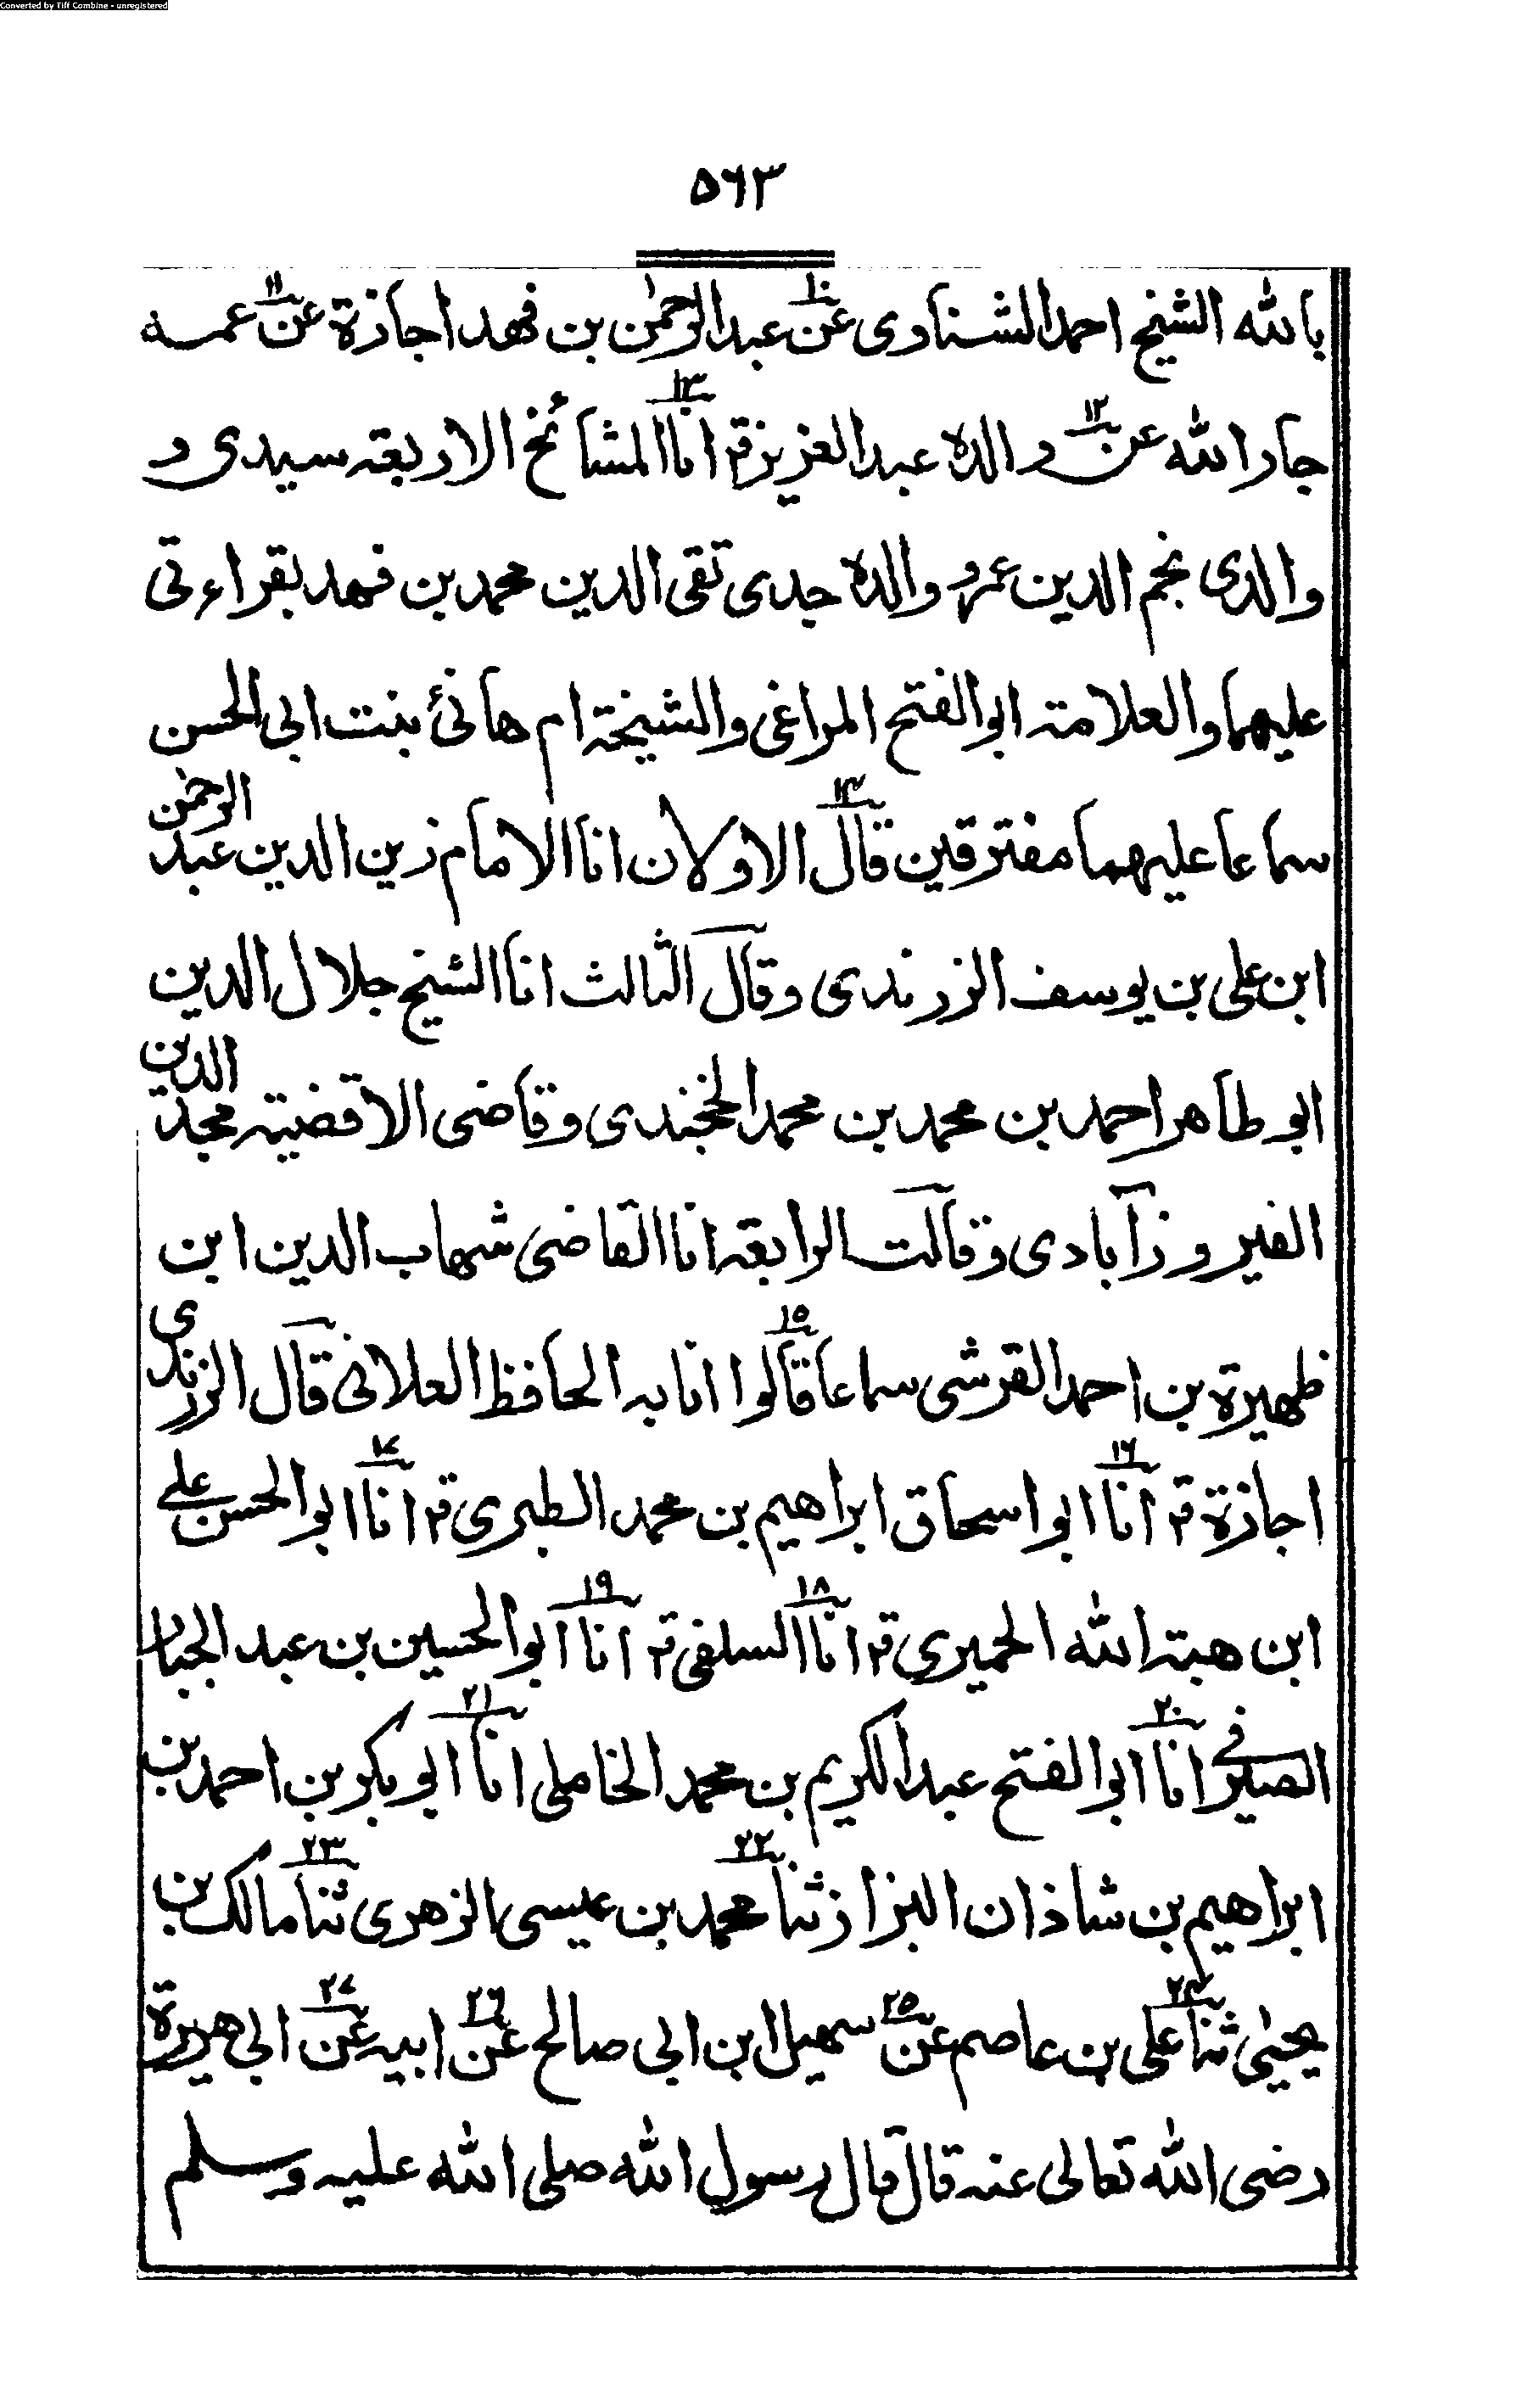 Converted by Tiff Combine - unregistered
۵۶۳
بالله الشيخ احمد الشناوی عن۱۰ عبد الرحمٰن بن فهد اجازة عن۱۱ عمه
جار الله عن۱۲ والده عبد العزيز قر انا۱۳ المشائخ الاربعة سيدی و
والدی نجم الدين عمر و والده جدی تقی الدين محمد بن فهد بقراءتی
عليهما والعلامة ابو الفتح المراغی والشيخة ام هانئ بنت ابی الحسن
سماعا عليهما مفترقين قال۱۴ الاولان انا الامام زين الدين عبد الرحمٰن
ابن علی بن يوسف الزرندی وقال الثالث انا الشيخ جلال الدين
ابو طاهر احمد بن محمد بن محمد الخجندی وقاضی الاقضية مجد الدين
الفيروزآبادی وقالت الرابعة انا القاضی شهاب الدين ابن
ظهيرة بن احمد القرشی سماعا قالوا۱۵ انا به الحافظ العلائی قال الزرندی
اجازة قر انا۱۶ ابو اسحاق ابراهيم بن محمد الطبری قر انا۱۷ ابو الحسن علی
ابن هبة الله الحميری قر انا۱۸ السلفی قر انا۱۹ ابو الحسين بن عبد الجبار
الصيرفی انا۲۰ ابو الفتح عبد الكريم بن محمد الخاملی انا۲۱ ابو بكر بن احمد بن
ابراهيم بن شاذان البزاز ثنا۲۲ محمد بن عيسی الزهری ثنا۲۳ مالك بن
يحيیٰ ثنا۲۴ علی بن عاصم عن۲۵ سهيل ابن ابی صالح عن۲۶ ابيه عن۲۷ ابی هريرة
رضی الله تعالی عنه قال قال رسول الله صلی الله عليه وسلم